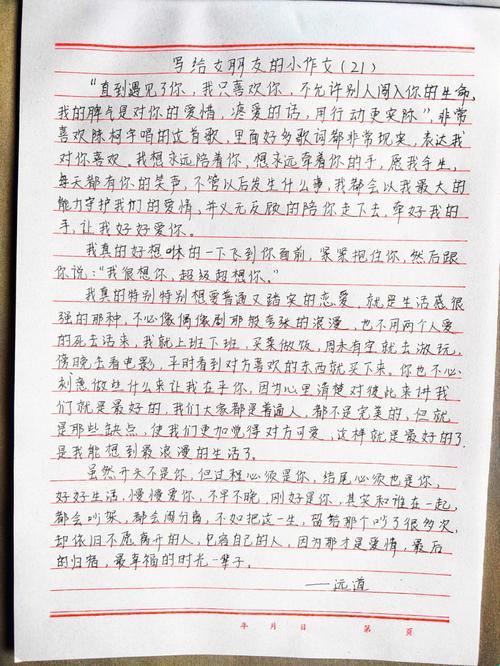 写给女朋友的小作文(21)
"直到遇见了你,我只喜欢你,不允许别人闯入你的生命,
我的脾气是对你的爱情,疼爱的话,用行动更实际",非常
喜欢陈柯宇唱的这首歌,里面好多歌词都非常现实,表达我
对你喜欢,我想永远陪着你,想永远牵着你的手,愿我余生,
每天都有你的笑声,不管以后发生什么事,我都会以我最大的
能力守护我们的爱情,并义无反顾的陪你走下去,牵好我的
手,让我好好爱你。
我真的好想咻的一下飞到你面前,紧紧抱住你,然后跟
你说:"我很想你,超级超想你。"
我真的特别特别想要普通又踏实的恋爱,就是生活感很
强的那种,不必像偶像剧那般夸张的浪漫,也不用两个人爱
的死去活来,我就上班下班,买菜做饭,周末有空就去游玩,
傍晚去看电影,平时看到对方喜欢的东西就买下来,你也不必
刻意做些什么来让我在乎你,因为心里清楚对彼此来讲我
们就是最好的,我们大家都是普通人,都不是完美的,但就
是那些缺点,使我们更加觉得对方可爱,这样就是最好的了,
是我能想到最浪漫的生活了。
虽然开头不是你,但过程必须是你,结尾必须也是你,
好好生活,慢慢爱你,不早不晚,刚好是你,其实和谁在一起,
都会吵架,都会闹分离,不如把这一生,留给那个吵了很多次,
却依旧不愿离开的人,包容自己的人,因为那才是爱情,最后
的归宿,最幸福的时光一辈子。
——远道
年 月 日 第 页